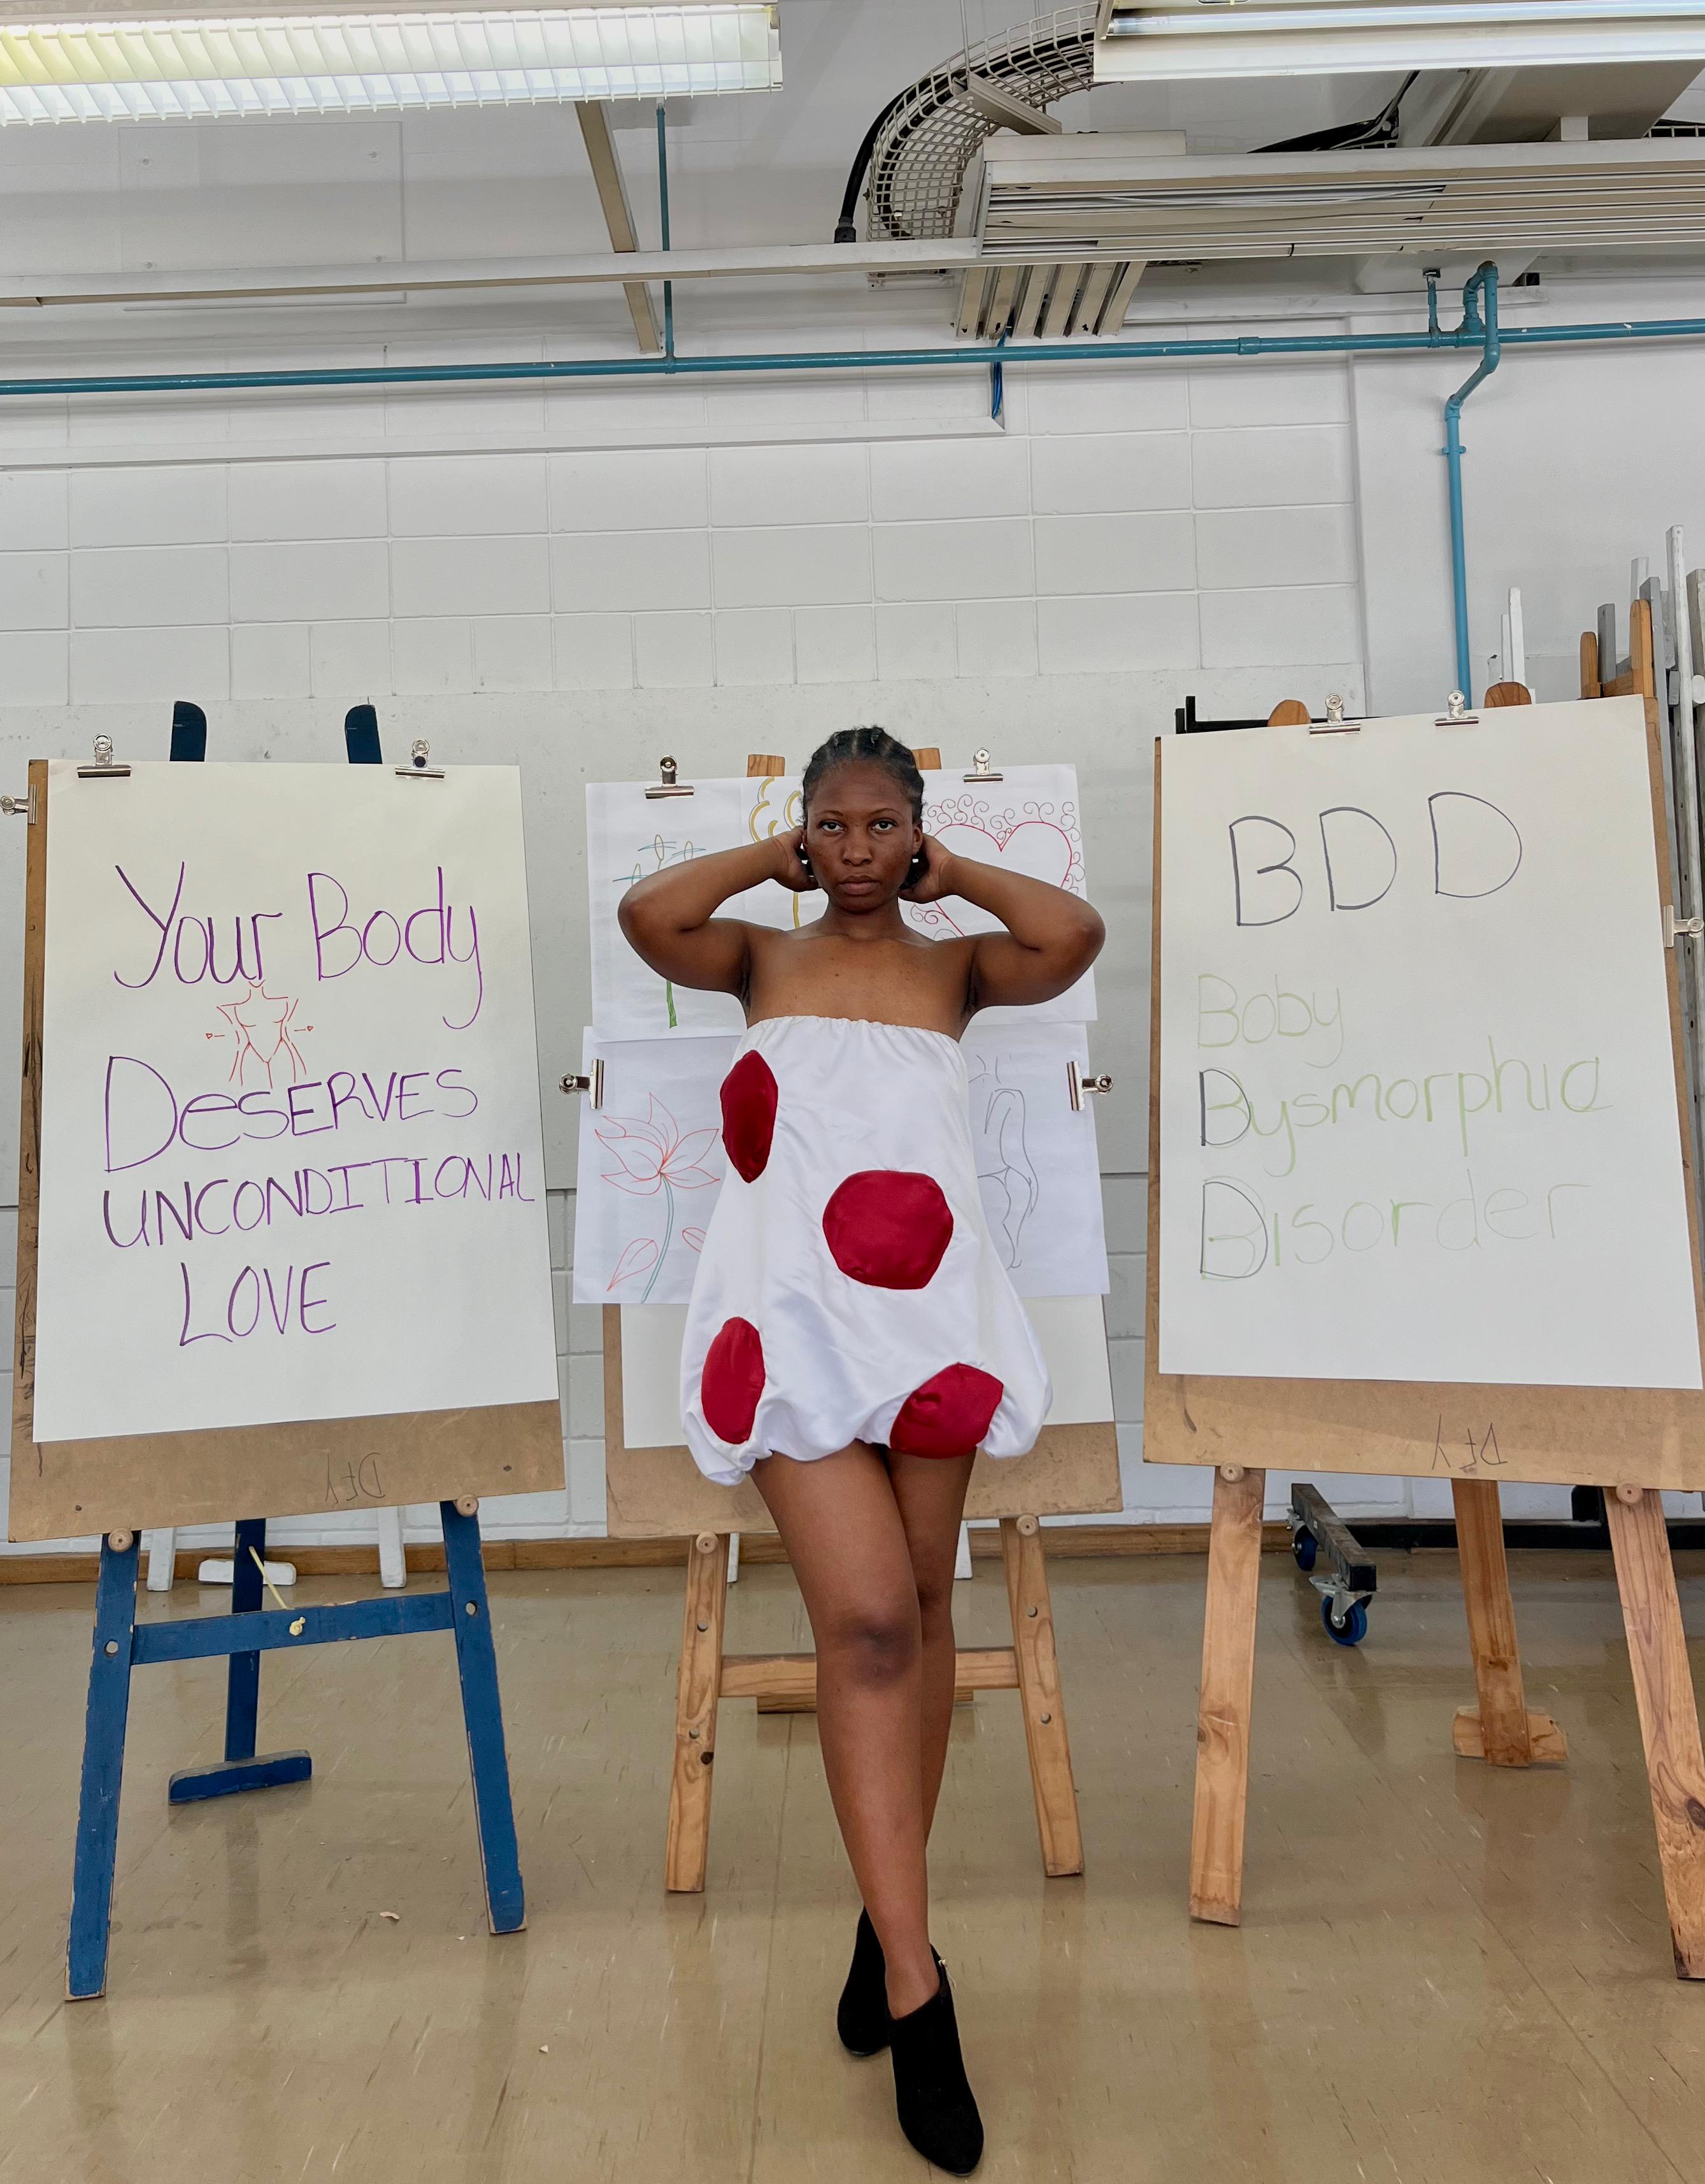 Your Body
DESERVES
UNCONDITIONAL
LOVE
DFY
BDD
Boby
Dysmorphia
Disorder
DFY